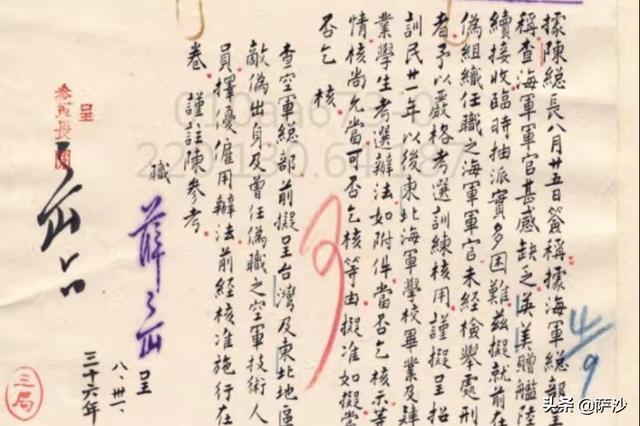 據陳總長八月廿五日簽稱據海軍總部呈
稱查海軍軍官甚感缺乏英美贈艦陸
續接收臨時抽派實多困難茲擬就前在
偽組織任職之海軍軍官未經檢舉處刑
者予以嚴格考選訓練核用謹擬呈招
訓民廿一年以後東北海軍學校畢業及肄
業學生考選辦法如附件當否乞核示等
情核尚允當可否乞核等由擬准如擬當
否乞 核
查空軍總部前擬呈台灣及東北地區
敵偽出身及曾任偽職之空軍技術人
員擇優僱用辦法前經核准施行在
卷 謹註陳參考
職 薛 呈
八、卅一、
三十六年
呈
參軍長閱
可
4/9
三局
头条 @萨沙